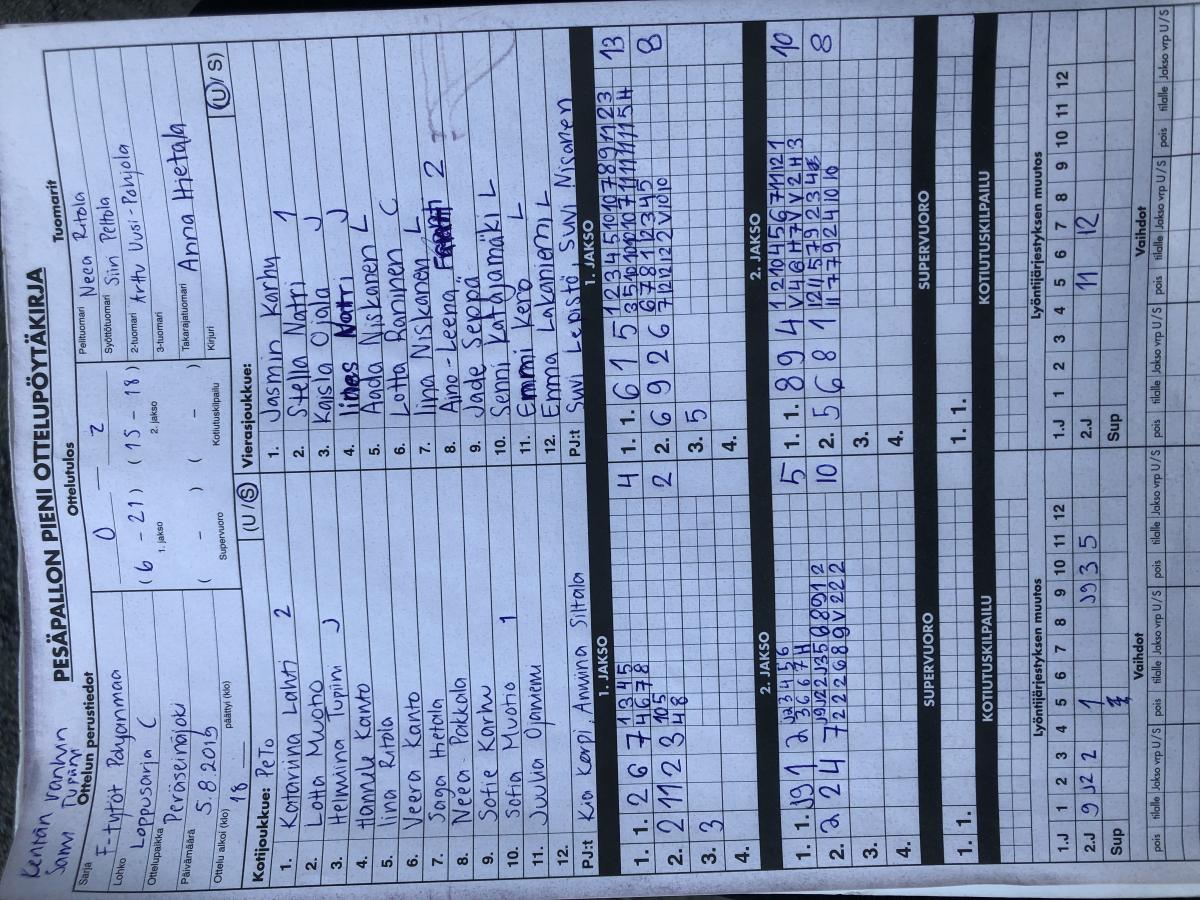 Kentän vanhin
Sami Turpiini
PESÄPALLON PIENI OTTELUPÖYTÄKIRJA
Ottelun perustiedot
Sarja F-tytöt Pohjanmaa
Lohko Loppusarja C
Ottelupaikka Peräseinäjoki
Päivämäärä 5.8.2019
Ottelu alkoi (klo) 18 päättyi (klo)
Ottelutulos
0 — 2
( 6 - 21 ) ( 15 - 18 )
1. jakso 2. jakso
( - ) ( - )
Supervuoro Kotiutuskilpailu
Tuomarit
Pelituomari Neea Ritola
Syöttötuomari Siiri Peltola
2-tuomari Arttu Uusi-Pohjola
3-tuomari
Takarajatuomari Anna Hietala
Kirjuri
Kotijoukkue: PeTo (U / S)
1. Katariina Lahti 2
2. Lotta Muotio
3. Helmiina Turpiini J
4. Hannele Kanto
5. Iina Ritola
6. Veera Kanto
7. Saga Hietala
8. Neea Pokkala
9. Sofie Karhu
10. Sofia Muotio 1
11. Juulia Ojaniemi
12.
PJ:t Kia Korpi, Anniina Siltala
Vierasjoukkue: (U / S)
1. Jasmin Karhu 1
2. Stella Natri J
3. Kaisla Ojala J
4. Iines Natri J
5. Aada Niskanen L
6. Lotta Raninen C
7. Iina Niskanen L
8. Aino-Leena 2
9. Jade Seppä
10. Senni Katajamäki L
11. Emmi Kero L
12. Emma Lakaniemi L
PJ:t Suvi Lepistö Suvi Nisonen
1. JAKSO
1. 1. 2 6 7 1 3 4 5 4
4 6 7 8
2. 2 11 2 3 2
3. 3
4.
1. JAKSO
1. 1. 6 1 5 13
2. 6 9 2 6 8
3. 5
4.
2. JAKSO
1. 1. J9 1 2 5
2. 2 4 7 10
3.
4.
2. JAKSO
1. 1. 8 9 4 10
2. 5 6 8 1 8
3.
4.
SUPERVUORO
1. 1.
KOTIUTUSKILPAILU
SUPERVUORO
1. 1.
KOTIUTUSKILPAILU
Lyöntijärjestyksen muutos
1.J 1 2 3 4 5 6 7 8 9 10 11 12
2.J 9 J2 2 1 J9 3 5
Sup
Vaihdot
pois tilalle Jakso vrp U/S pois tilalle Jakso vrp U/S pois tilalle Jakso vrp U/S
Lyöntijärjestyksen muutos
1.J 1 2 3 4 5 6 7 8 9 10 11 12
2.J 11 12
Sup
Vaihdot
pois tilalle Jakso vrp U/S pois tilalle Jakso vrp U/S pois tilalle Jakso vrp U/S